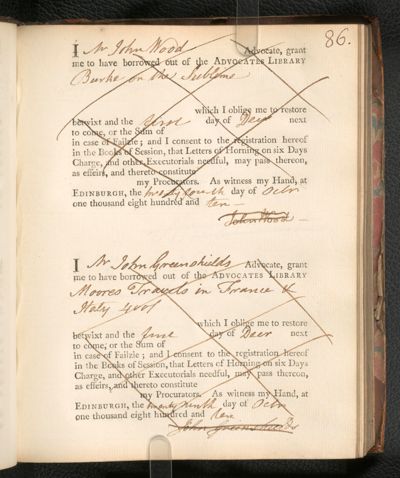 86.
I Mr John Wood Advocate, grant
me to have borrowed out of the ADVOCATES LIBRARY
Burke on the Sublime
which I oblige me to restore
betwixt and the first day of Decr next
to come, or the Sum of
in case of Failzie; and I consent to the registration hereof
in the Books of Session, that Letters of Horning on six Days
Charge, and other Executorials needful, may pass thereon,
as effeirs, and thereto constitute
my Procurators. As witness my Hand, at
EDINBURGH, the day of Octr
one thousand eight hundred and ten
John Wood
I Mr John Greenshields Advocate, grant
me to have borrowed out of the ADVOCATES LIBRARY
Moores Travels in France &
Italy 4 vol
which I oblige me to restore
betwixt and the first day of Decr next
to come, or the Sum of
in case of Failzie; and I consent to the registration hereof
in the Books of Session, that Letters of Horning on six Days
Charge, and other Executorials needful, may pass thereon,
as effeirs, and thereto constitute
my Procurators. As witness my Hand, at
EDINBURGH, the twenty ninth day of Octr
one thousand eight hundred and ten
John Greenshields